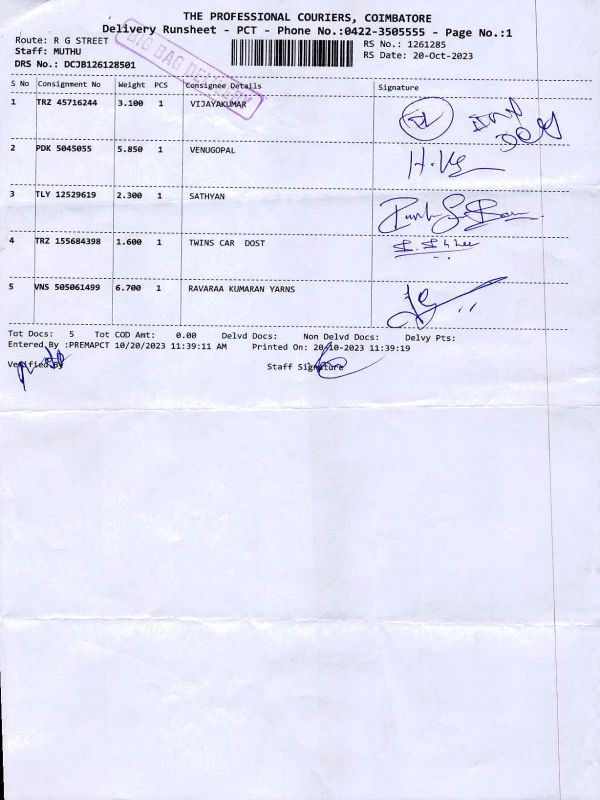 THE PROFESSIONAL COURIERS, COIMBATORE
Delivery Runsheet - PCT - Phone No.:0422-3505555 - Page No.:1
Route: R G STREET
Staff: MUTHU
DRS No.: DCJB126128501
RS No.: 1261285
RS Date: 20-Oct-2023
BIG BAG DELIVERY
S No Consignment No Weight PCS Consignee Details Signature
1 TRZ 45716244 3.100 1 VIJAYAKUMAR
2 PDK 5045055 5.850 1 VENUGOPAL
3 TLY 12529619 2.300 1 SATHYAN
4 TRZ 155684398 1.600 1 TWINS CAR DOST
5 VNS 505061499 6.700 1 RAVARAA KUMARAN YARNS
Tot Docs: 5 Tot COD Amt: 0.00 Delvd Docs: Non Delvd Docs: Delvy Pts:
Entered By :PREMAPCT 10/20/2023 11:39:11 AM Printed On: 20-10-2023 11:39:19
Verified By Staff Signature